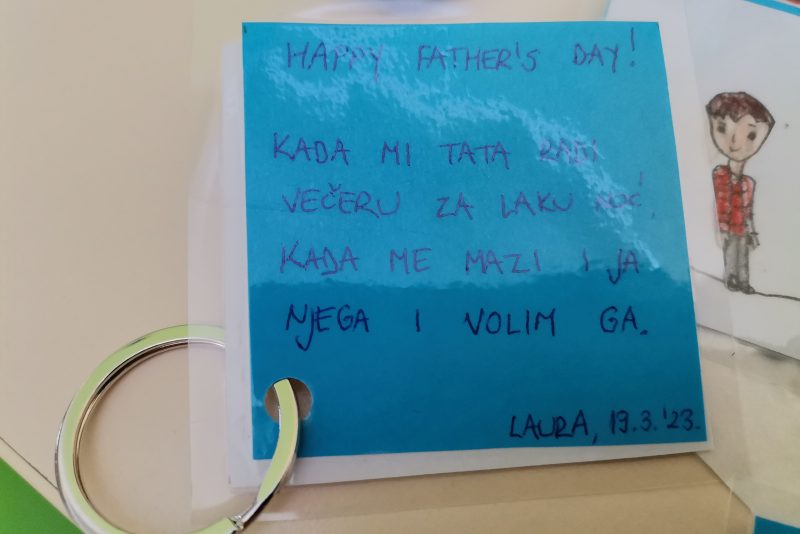 HAPPY FATHER'S DAY!
KADA MI TATA RADI
VEČERU ZA LAKU NOĆ!
KADA ME MAZI I JA
NJEGA I VOLIM GA.
LAURA, 19.3.'23.